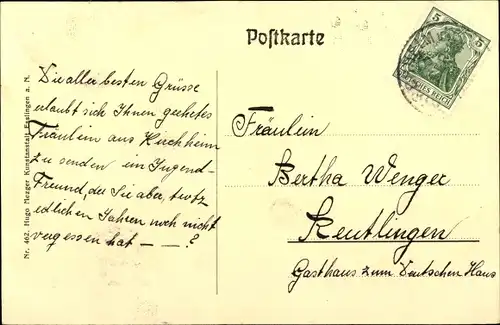 Postkarte
Die aller besten Grüsse
erlaubt sich Ihnen geehrtes
Fräulein aus Kirchheim
zu senden ein Jugend-
Freund, der Sie aber, trotz
edlichen Jahren noch nicht
vergessen hat — — ?
Fräulein
Bertha Wenger
Reutlingen
Gasthaus zum Deutschen Haus
5 5
DEUTSCHES REICH
Nr. 462. Hugo Mezger Kunstanstalt Esslingen a. N.